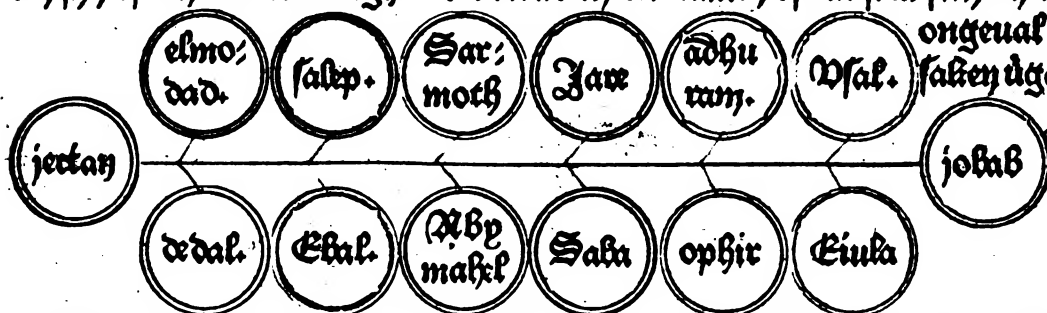 ongeual
elmo⸗
dad.
ſalep.
Sar⸗
moth
Jare
adhu
ram.
Vſal.
jectan
jobab
dedal.
Ebal.
Aby
mahel
Saba
ophir
Eiula